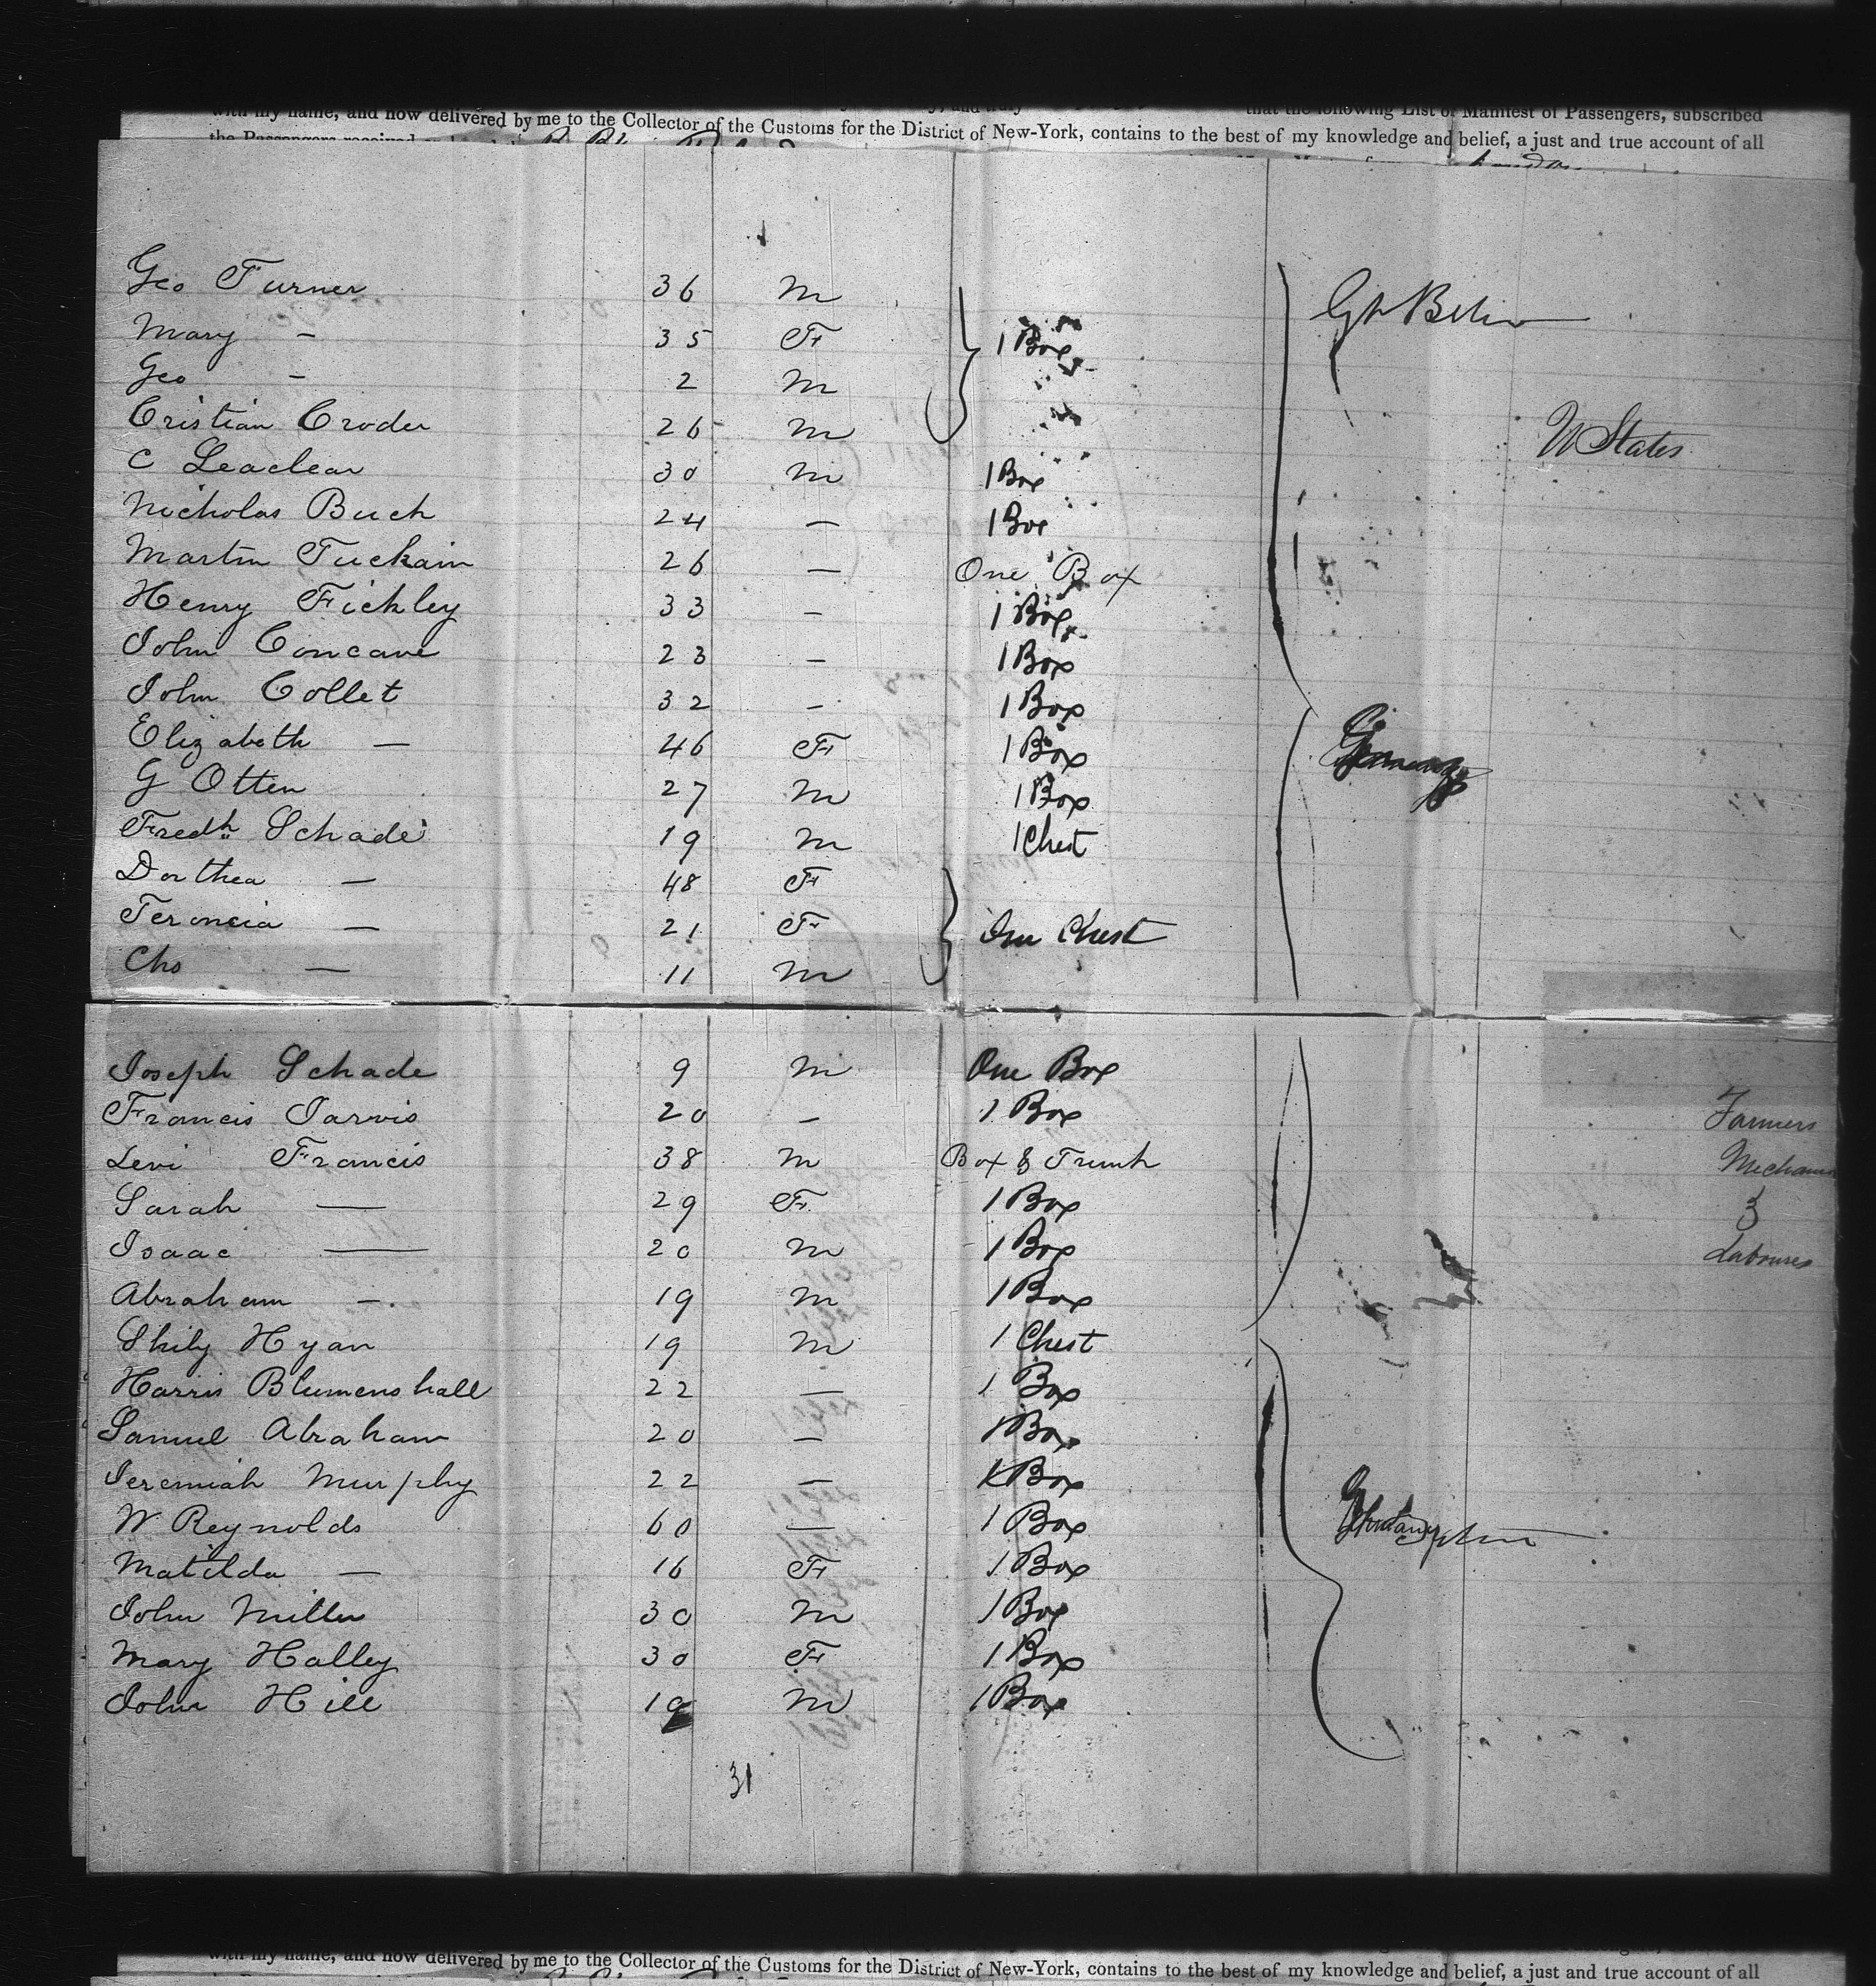 with my name, and now delivered by me to the Collector of the Customs for the District of New-York, contains to the best of my knowledge and belief, a just and true account of all
that the following List or Manifest of Passengers, subscribed
Geo Turner 36 M Gt Britain
Mary - 35 F 1 Box
Geo - 2 M
Cristian Croder 26 M U States
C Leaclear 30 M 1 Box
Nicholas Buch 24 — 1 Box
Martin Tuckain 26 — One Box
Henry Fickley 33 - 1 Box
John Concave 23 - 1 Box
John Collet 32 - 1 Box
Elizabeth — 46 F 1 Box Germany
G Otten 27 M 1 Box
Fredh Schade 19 M 1 Chest
Dorthea — 48 F
Teroncia — 21 F One Chest
Chs — 11 M
Joseph Schade 9 M One Box
Francis Jarvis 20 - 1 Box Farmers
Levi Francis 38 M Box & Trunk Mechanics
Sarah — 29 F 1 Box &
Isaac — 20 M 1 Box Labourers
Abraham - 19 M 1 Box
Shily Hyan 19 M 1 Chest
Harris Blumenshall 22 — 1 Box
Samuel Abraham 20 — 1 Box
Jeremiah Murphy 22 — 1 Box
W Reynolds 60 — 1 Box
Matilda — 16 F 1 Box
John Miller 30 M 1 Box
Mary Halley 30 F 1 Box
John Hill 19 M 1 Box
31
with my name, and now delivered by me to the Collector of the Customs for the District of New-York, contains to the best of my knowledge and belief, a just and true account of all